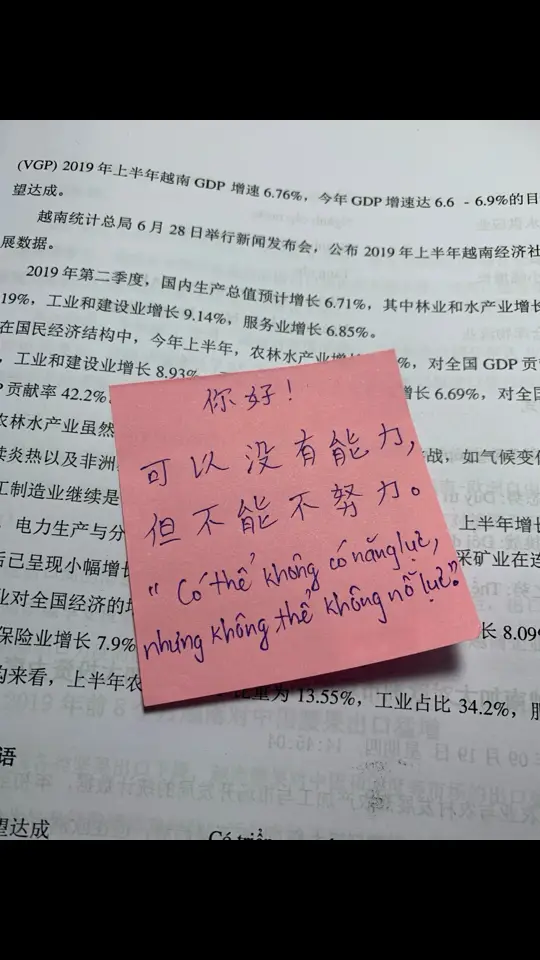 (VGP) 2019 年上半年越南 GDP 增速 6.76%，今年 GDP 增速达 6.6 - 6.9%的目
望达成。
越南统计总局 6 月 28 日举行新闻发布会，公布 2019 年上半年越南经济社
展数据。
2019 年第二季度，国内生产总值预计增长 6.71%，其中林业和水产业增长
19%，工业和建设业增长 9.14%，服务业增长 6.85%。
在国民经济结构中，今年上半年，农林水产业增长 %，对全国 GDP 贡
，工业和建设业增长 8.93% 增长 6.69%，对全国
贡献率 42.2%
农林水产业虽然
续炎热以及非洲 战，如气候变
工制造业继续是
电力生产与分 上半年增
后已呈现小幅增长 采矿业在连
业对全国经济的增
保险业增长 7.9% 长 8.09%
构来看，上半年农 比重为 13.55%，工业占比 34.2%，服
你好！
可以没有能力，
但不能不努力。
"Có thể không có năng lực,
nhưng không thể không nỗ lực."
语
望达成
Có triển